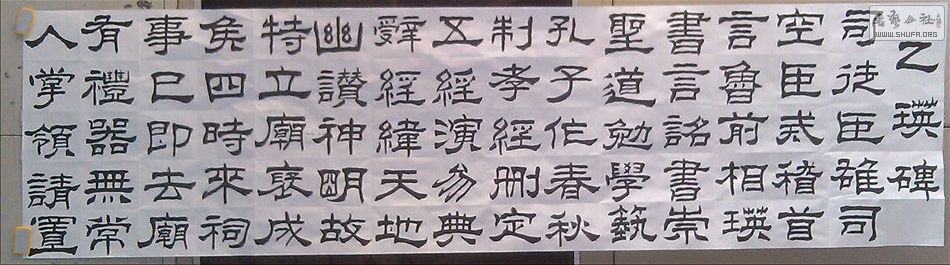 乙瑛碑
司徒臣雄司
空臣戒稽首
言魯前相瑛
書言詔書崇
聖道勉學藝
孔子作春秋
制孝經刪定
五經演易典
辭經緯天地
幽讚神明故
特立廟褒成
侯四時來祠
事已即去廟
有禮器無常
人掌領請置
公社
WWW.SHUFA.ORG